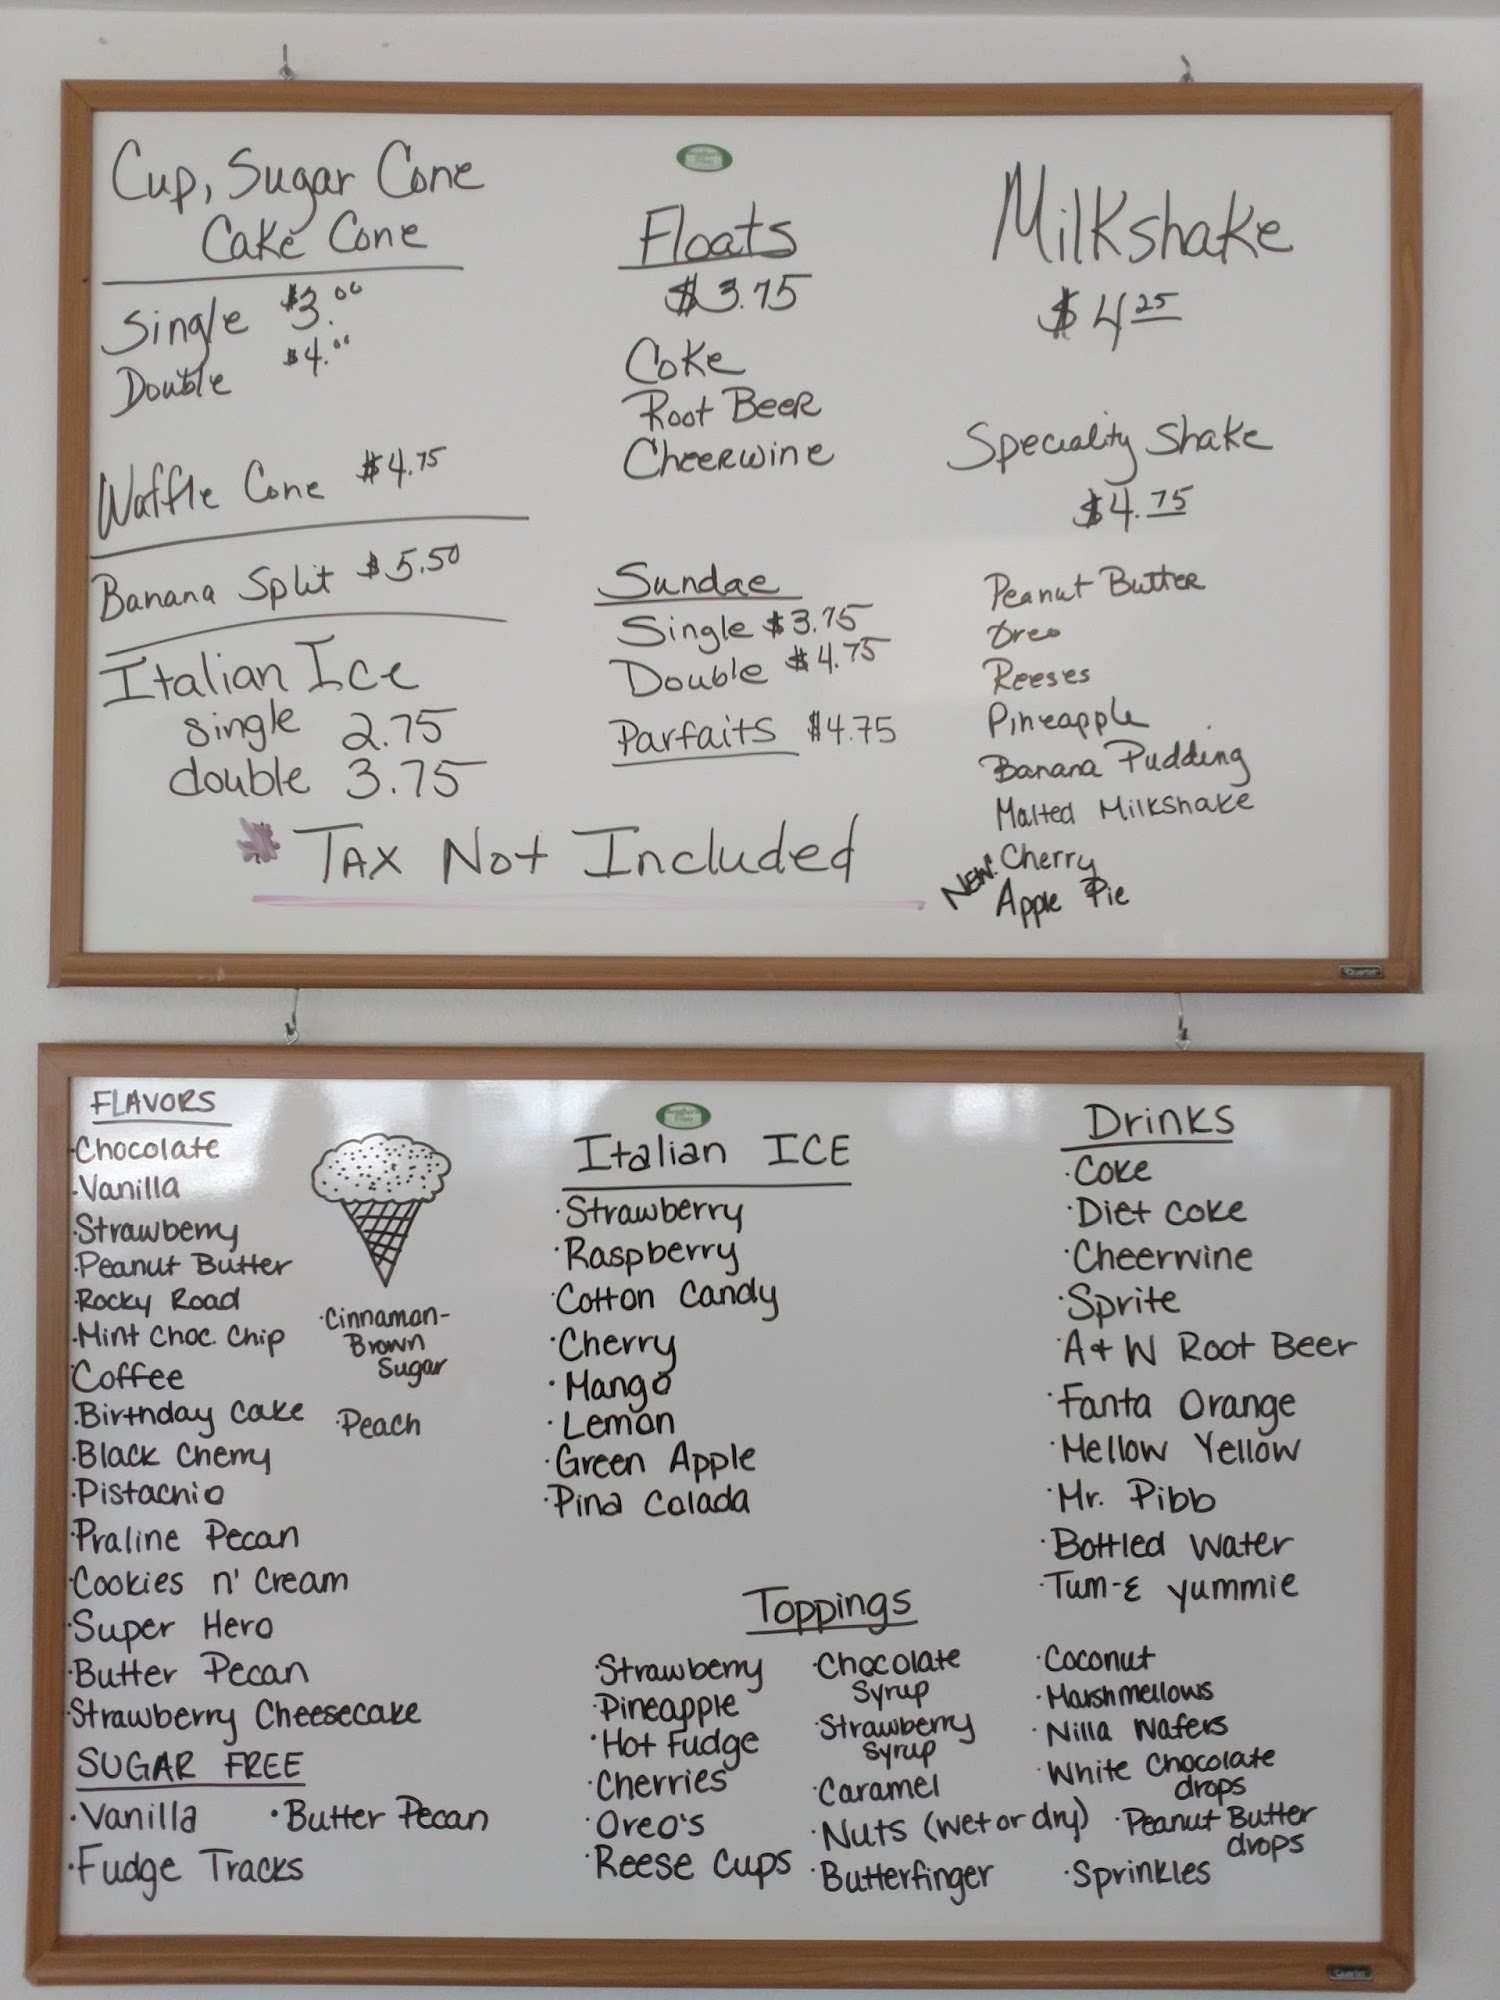 Cup, Sugar Cone
Cake Cone
Single $3.00
Double $4.00
Waffle Cone $4.75
Banana Split $5.50
Italian Ice
single 2.75
double 3.75
Floats
$3.75
Coke
Root Beer
Cheerwine
Sundae
Single $3.75
Double $4.75
Parfaits $4.75
* Tax Not Included
Milkshake
$4 25
Speciality Shake
$4.75
Peanut Butter
Oreo
Reeses
Pineapple
Banana Pudding
Malted Milkshake
New: Cherry
Apple Pie
Quartet
FLAVORS
Chocolate
·Vanilla
·Strawberry
·Peanut Butter
·Rocky Road
·Mint Choc. Chip
Coffee
·Birthday Cake
·Black Cherry
·Pistachio
·Praline Pecan
·Cookies n' Cream
·Super Hero
·Butter Pecan
·Strawberry Cheesecake
·Cinnamon-
Brown
Sugar
·Peach
SUGAR FREE
·Vanilla ·Butter Pecan
·Fudge Tracks
Italian ICE
·Strawberry
·Raspberry
·Cotton Candy
·Cherry
·Mango
·Lemon
·Green Apple
·Pina Colada
Drinks
·Coke
·Diet Coke
·Cheerwine
·Sprite
·A & W Root Beer
·Fanta Orange
·Mellow Yellow
·Mr. Pibb
·Bottled Water
·Tum-E yummie
Toppings
·Strawberry
·Pineapple
·Hot Fudge
·Cherries
·Oreo's
·Reese Cups
·Chocolate
Syrup
·Strawberry
Syrup
·Caramel
·Nuts (wet or dry)
·Butterfinger
·Coconut
·Marshmellows
·Nilla Wafers
·White Chocolate
drops
·Peanut Butter
drops
·Sprinkles
Quartet